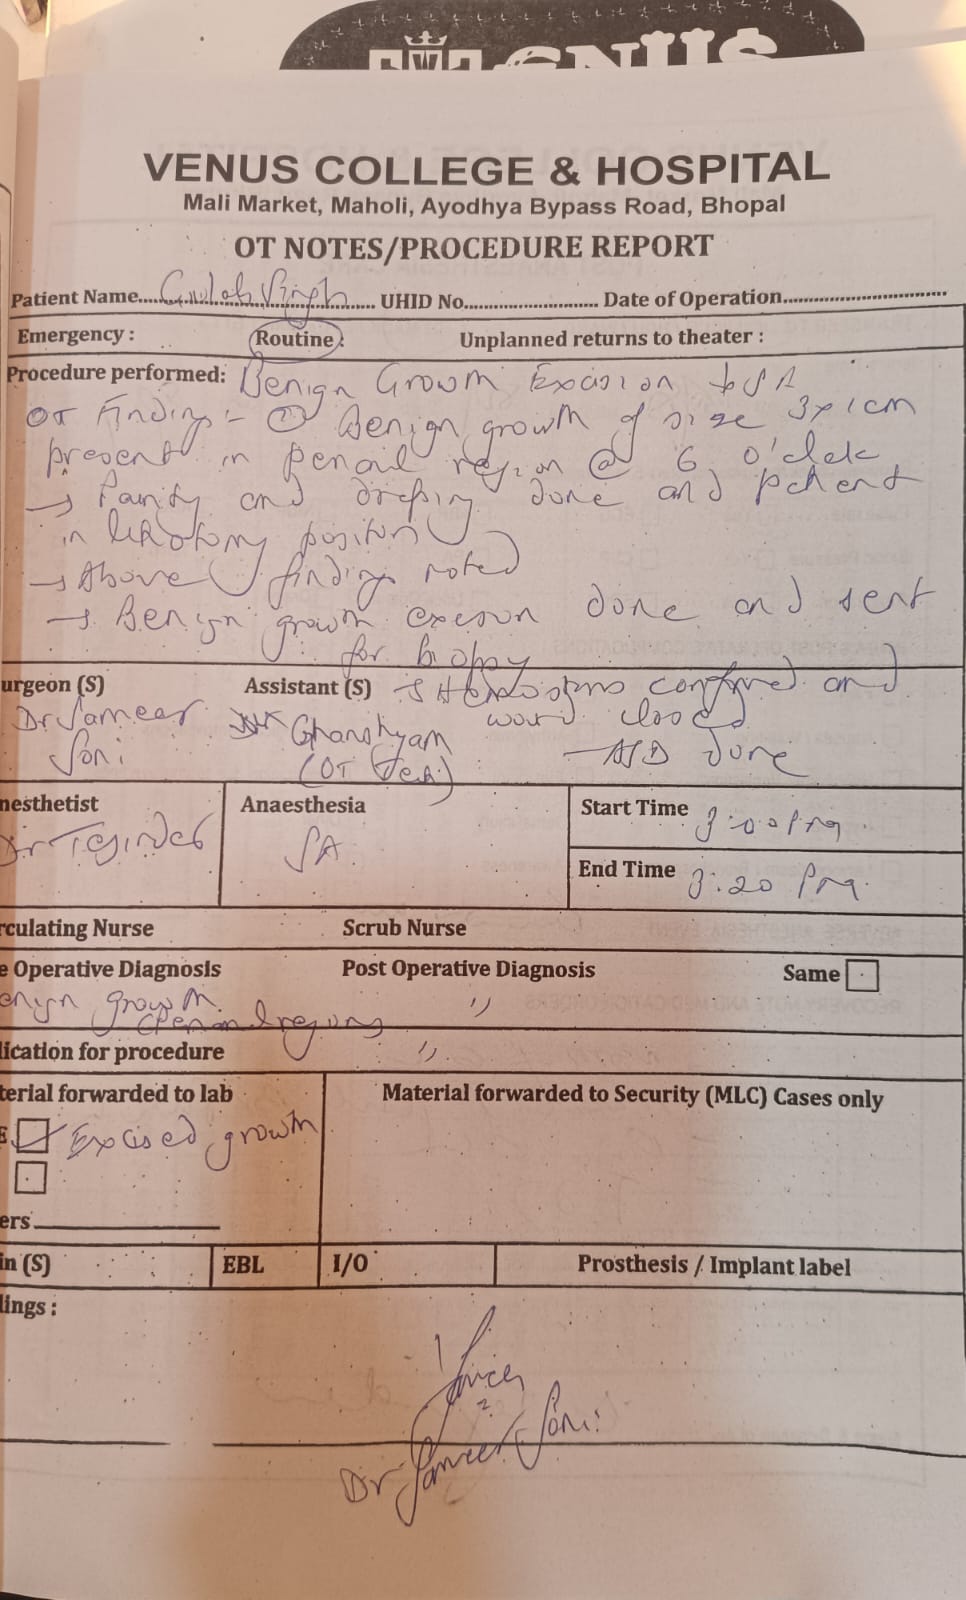 VENUS COLLEGE & HOSPITAL
Mali Market, Maholi, Ayodhya Bypass Road, Bhopal
OT NOTES/PROCEDURE REPORT
Patient Name.... Gulab Singh .... UHID No............................ Date of Operation..............................
Emergency : Routine : Unplanned returns to theater :
Procedure performed: Benign Growth Excision
OT Findings :- ① Benign growth of size 3x1cm
present in region @ 6 o'clock
→ and done and patient
in position
→ Above findings noted
→ Benign growth done and sent
for biopsy
urgeon (S) Assistant (S) → confirmed and
Dr Sameer Ghanshyam wound closed
Soni (OT Tech) → ASD done
nesthetist Anaesthesia Start Time 3:00 Pm
Dr SA End Time 3:20 Pm.
rculating Nurse Scrub Nurse
e Operative Diagnosis Post Operative Diagnosis Same
enign growth "
region
lication for procedure "
terial forwarded to lab Material forwarded to Security (MLC) Cases only
Excised growth
ers
in (S) EBL I/O Prosthesis / Implant label
lings :
Dr Sameer Soni